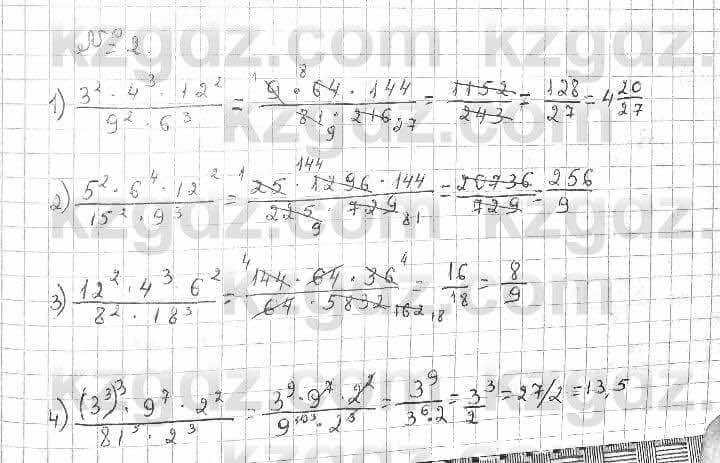 №2.
1) 3² · 4³ · 12² / 9² · 6³ = ¹9 · ⁸64 · 144 / 81₉ · 216₂₇ = 1152/243 = 128/27 = 4 20/27
2) 5² · 6⁴ · 12² / 15² · 9³ = ¹25 · ¹⁴⁴1296 · 144 / 225₉ · 729₈₁ = 20736/729 = 256/9
3) 12² · 4³ · 6² / 8² · 18³ = ⁴144 · 64 · 36⁴ / 64 · 5832 162 18 = 16/18 = 8/9
4) (3³)³ · 9⁷ · 2² / 81⁵ · 2³ = 3⁹ · 9⁷ · 2² / 9¹⁰ · 2³ = 3⁹ / 3⁶ · 2 = 3³/2 = 27/2 = 13,5
kzgdz.com
kzgdz.com
kzgdz.com